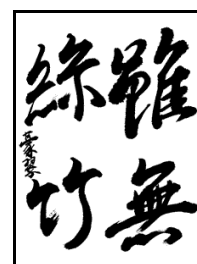 雖無
絲竹